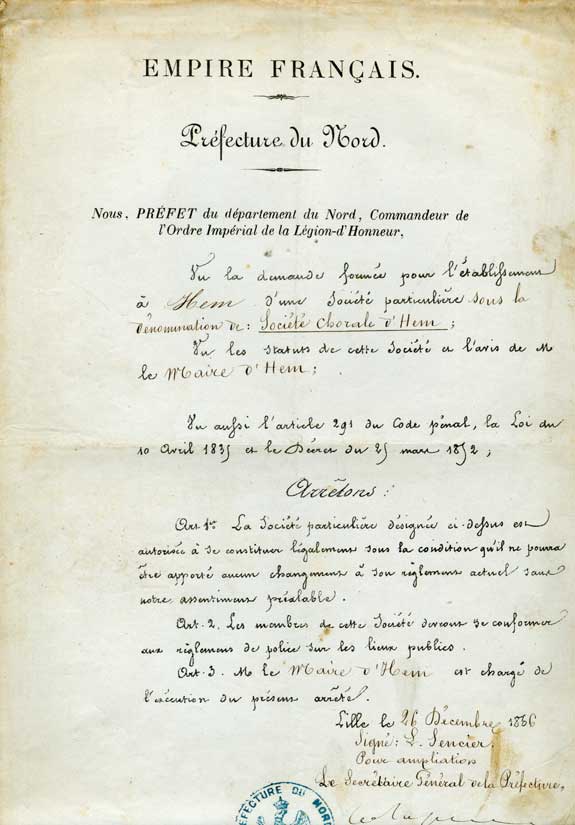 EMPIRE FRANÇAIS.
Préfecture du Nord.
Nous, PRÉFET du département du Nord, Commandeur de
l'Ordre Impérial de la Légion-d'Honneur,
Vu la demande formée pour l'établissement
à Hem d'une Société particulière sous la
dénomination de : Société Chorale d'Hem ;
Vu les statuts de cette Société et l'avis de M
le Maire d'Hem ;
Vu aussi l'article 291 du Code pénal, la Loi du
10 Avril 1835 et le Décret du 25 mars 1852 ;
Arrêtons :
Art. 1er La Société particulière désignée ci-dessus est
autorisée à se constituer légalement sous la condition qu'il ne pourra
être apporté aucun changement à son règlement actuel sans
notre assentiment préalable.
Art. 2. Les membres de cette Société devront se conformer
aux règlemens de police sur les lieux publics.
Art. 3. M le Maire d'Hem est chargé de
l'exécution du présent arrêté.
Lille le 26 Décembre 1866
Signé : L. Sencier.
Pour ampliation
Le Secrétaire Général de la Préfecture,
PRÉFECTURE DU NORD